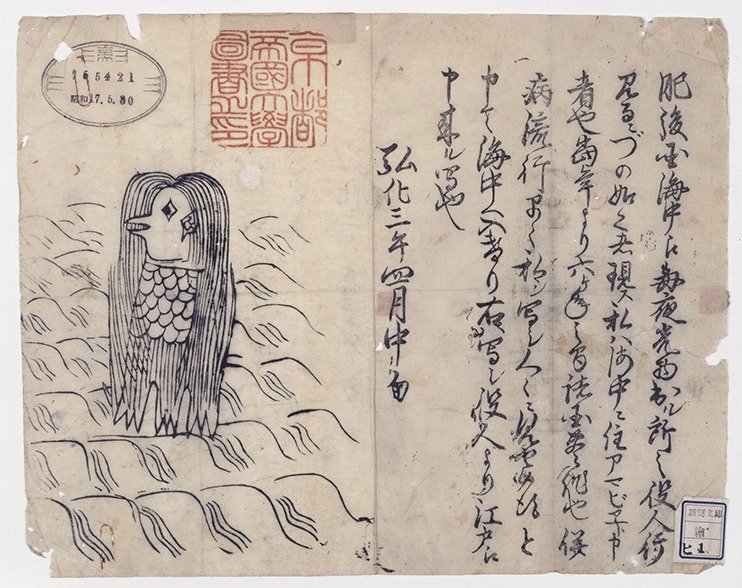 肥後国海中え毎夜光物出ル所之役人行
見るニづの如く者現ス私ハ海中ニ住アマビヱト申
者也当年より六ヶ年之間諸国豊作也併
病流行早々私ヲ写シ人々ニ見セ候得と
申て海中へ入けり右写シ役人より江戸え
申来ル写也
弘化三年四月中旬
京都
帝國大學
圖書之印
165421
昭和17.5.30
新聞文庫
繪
ヒ 1